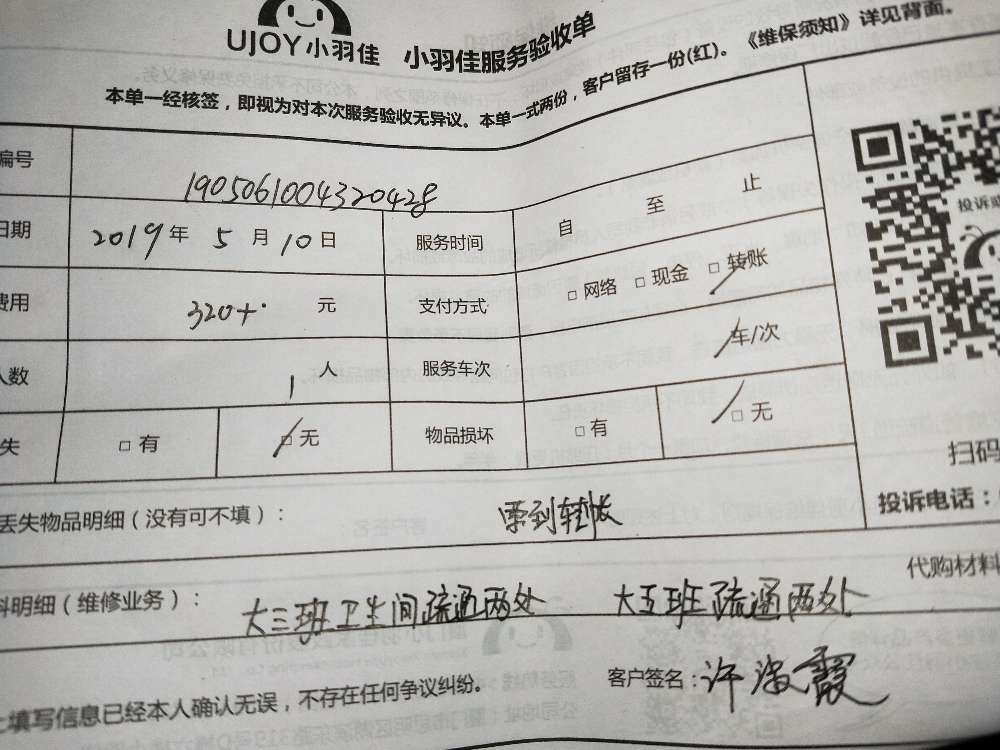 UJOY小羽佳 小羽佳服务验收单
本单一经核签，即视为对本次服务验收无异议。本单一式两份，客户留存一份(红)。《维保须知》详见背面。
编号 1905061004320428
日期 2019年 5月10日 服务时间 自 至 止
费用 320+· 元 支付方式 □网络 □现金 □转账
人数 1人 服务车次 车/次
失 □有 □无 物品损坏 □有 □无
丢失物品明细（没有可不填）： 票到转帐
扫码
投诉电话：
代购材料
料明细（维修业务）： 大三班卫生间疏通两处 大五班疏通两处
上填写信息已经本人确认无误，不存在任何争议纠纷。 客户签名：许 霞